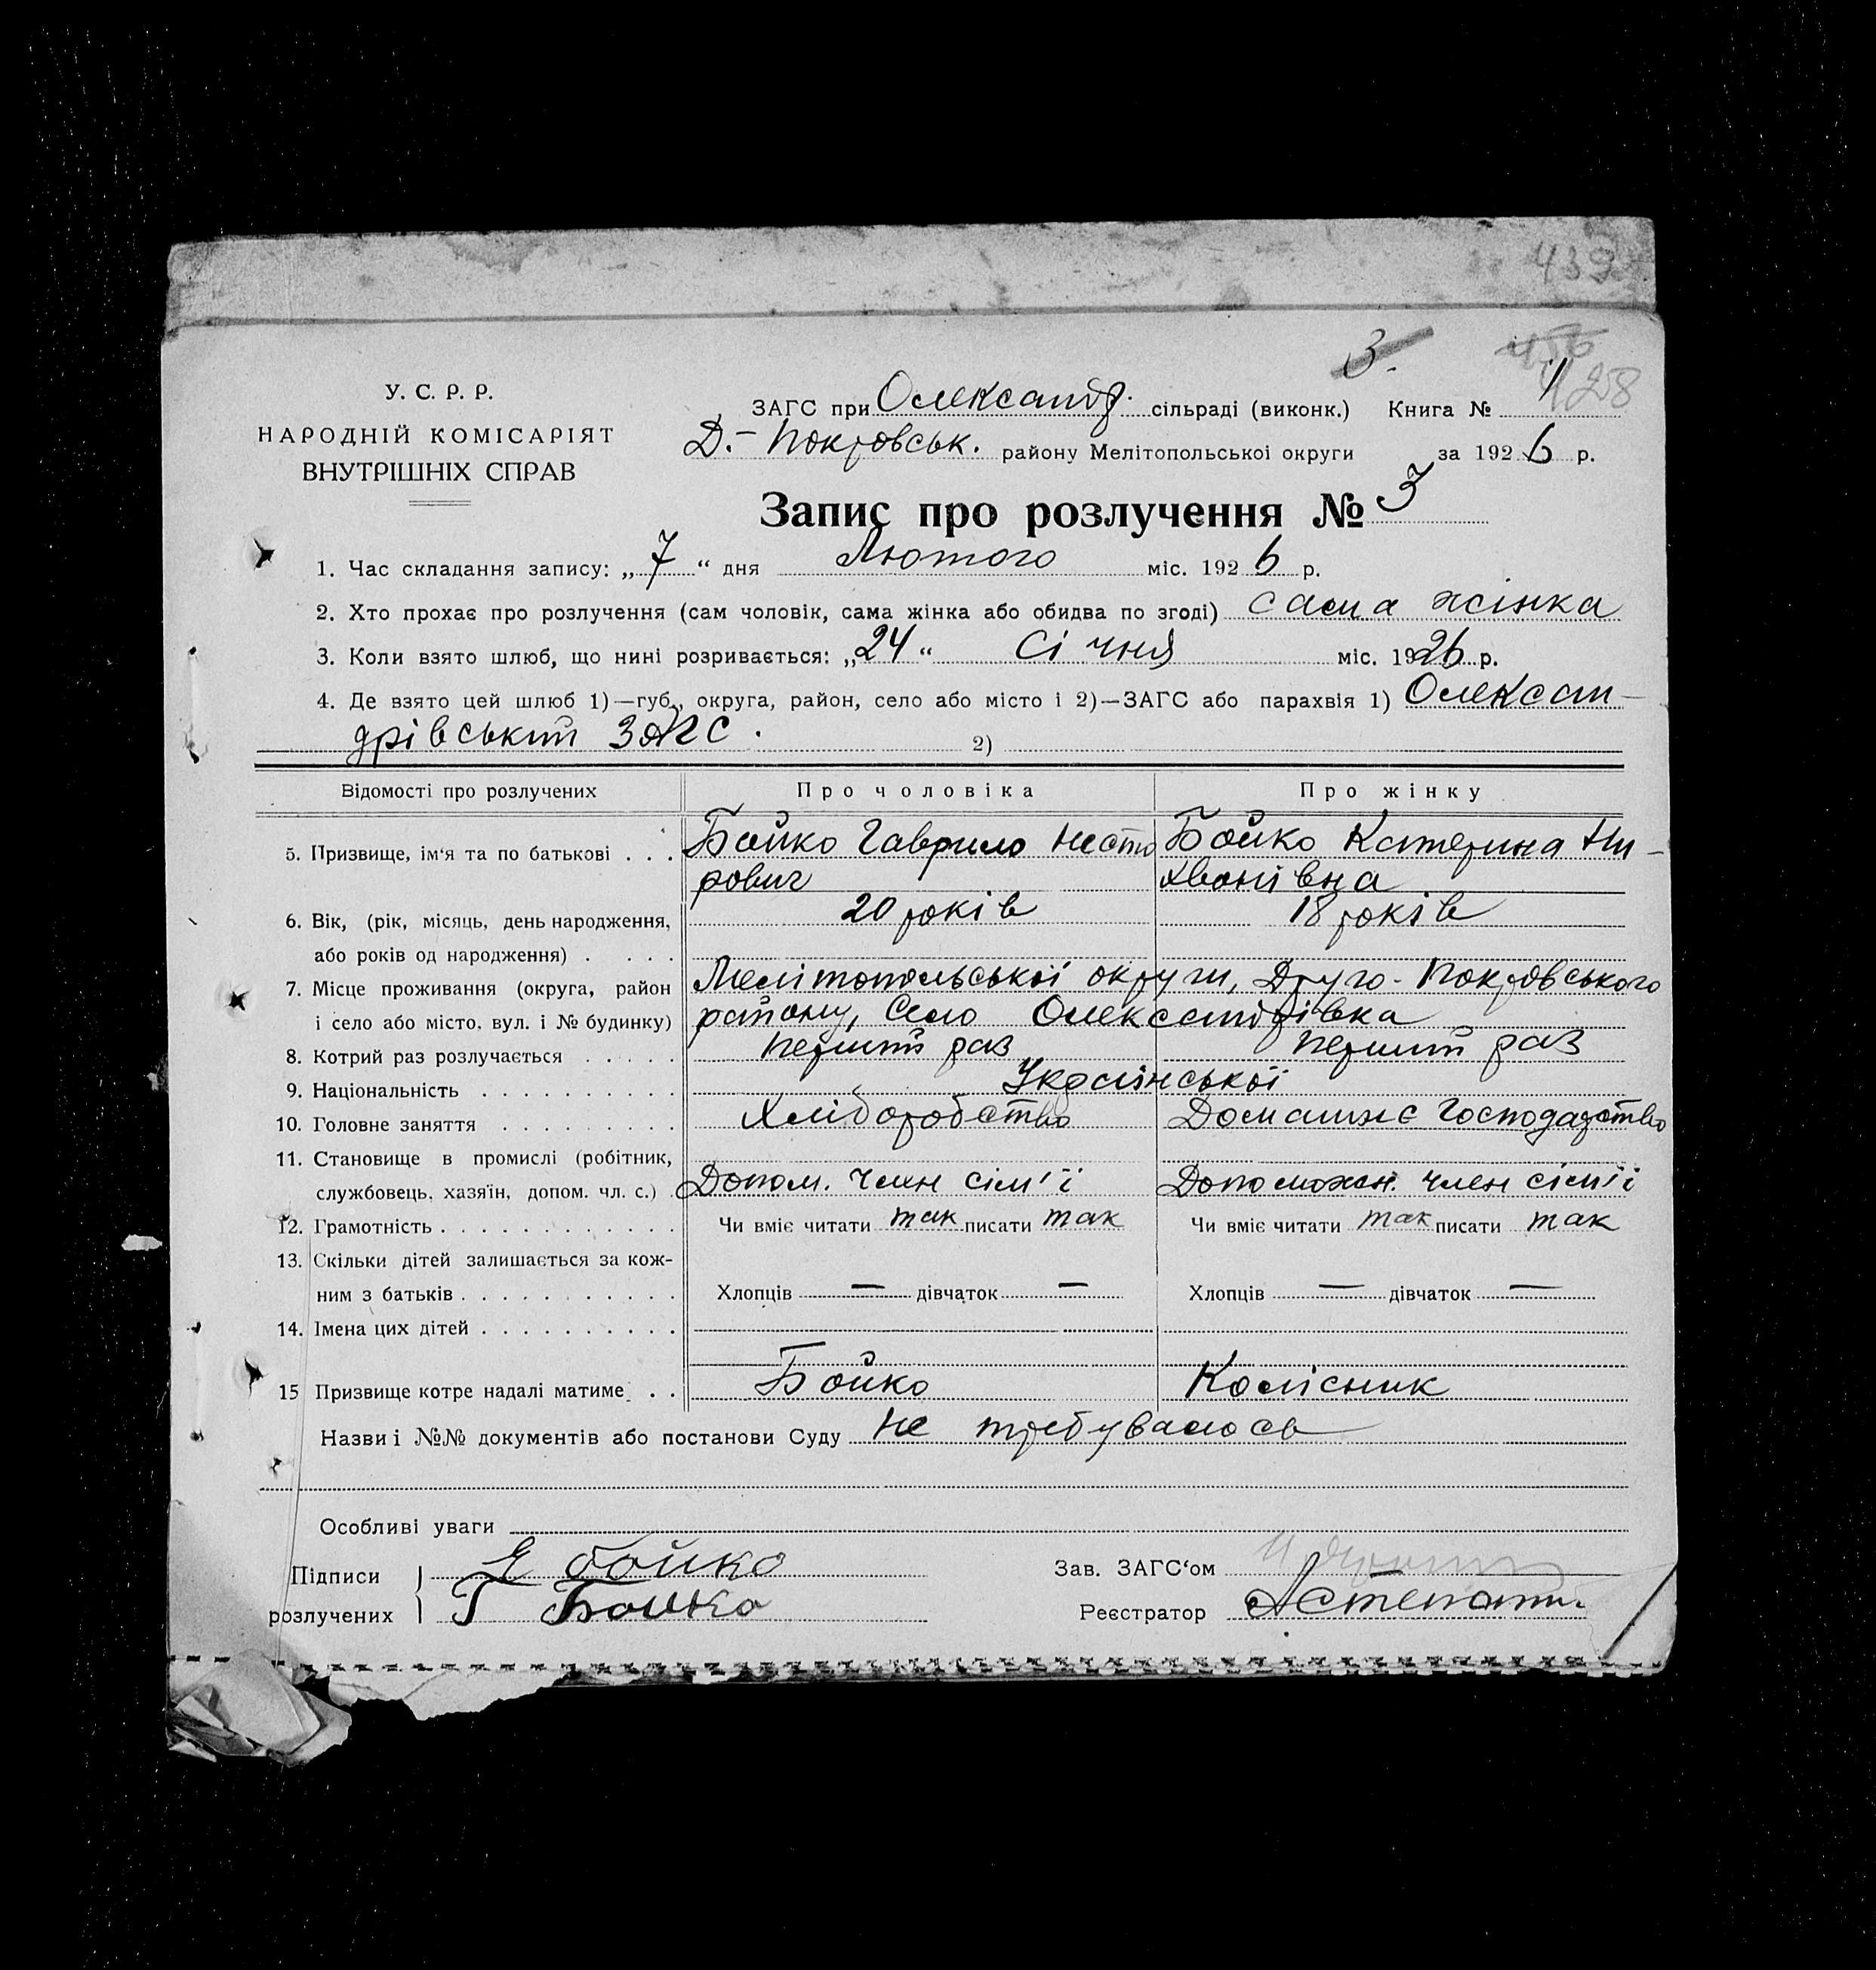 439
3.
128
У. С. Р. Р.
НАРОДНІЙ КОМІСАРІЯТ
ВНУТРІШНІХ СПРАВ
ЗАГС при Олександр. сільраді (виконк.) Книга № 1
Д.-Покровськ. району Мелітопольської округи за 1926 р.
Запис про розлучення № 3
1. Час складання запису: „7“ дня Лютого міс. 1926 р.
2. Хто прохає про розлучення (сам чоловік, сама жінка або обидва по згоді) сама жінка
3. Коли взято шлюб, що нині розривається: „24“ Січня міс. 1926 р.
4. Де взято цей шлюб 1)—губ., округа, район, село або місто і 2)—ЗАГС або парахвія 1) Олексан-
дрівський ЗАГС. 2)
Відомості про розлучених Про чоловіка Про жінку
5. Призвище, ім‘я та по батькові . . . Бойко Гаврило Несто Бойко Катерина Ни-
рович хвонівна
6. Вік, (рік, місяць, день народження, 20 років 18 років
або років од народження) . . . .
7. Місце проживання (округа, район Мелітопольської округи, Друго-Покровського
і село або місто, вул. і № будинку) району, Село Олександрівка
8. Котрий раз розлучається . . . . . Перший раз Перший раз
9. Національність . . . . . . . . . . Української
10. Головне заняття . . . . . . . . . Хліборобство Домашнє Господарство
11. Становище в промислі (робітник,
службовець, хазяїн, допом. чл. с.) . Допом. Член сім'ї Допоможн. член сім'ї
12. Грамотність . . . . . . . . . . . . Чи вміє читати так писати так Чи вміє читати так писати так
13. Скільки дітей залишається за кож-
ним з батьків . . . . . . . . . . . Хлопців — дівчаток — Хлопців — дівчаток —
14. Імена цих дітей . . . . . . . . . .
15 Призвище котре надалі матиме . . Бойко Колісник
Назви і №№ документів або постанови Суду Не требувалось
Особливі уваги
Підписи бойко Зав. ЗАГС‘ом
розлучених Г Бойко Реєстратор